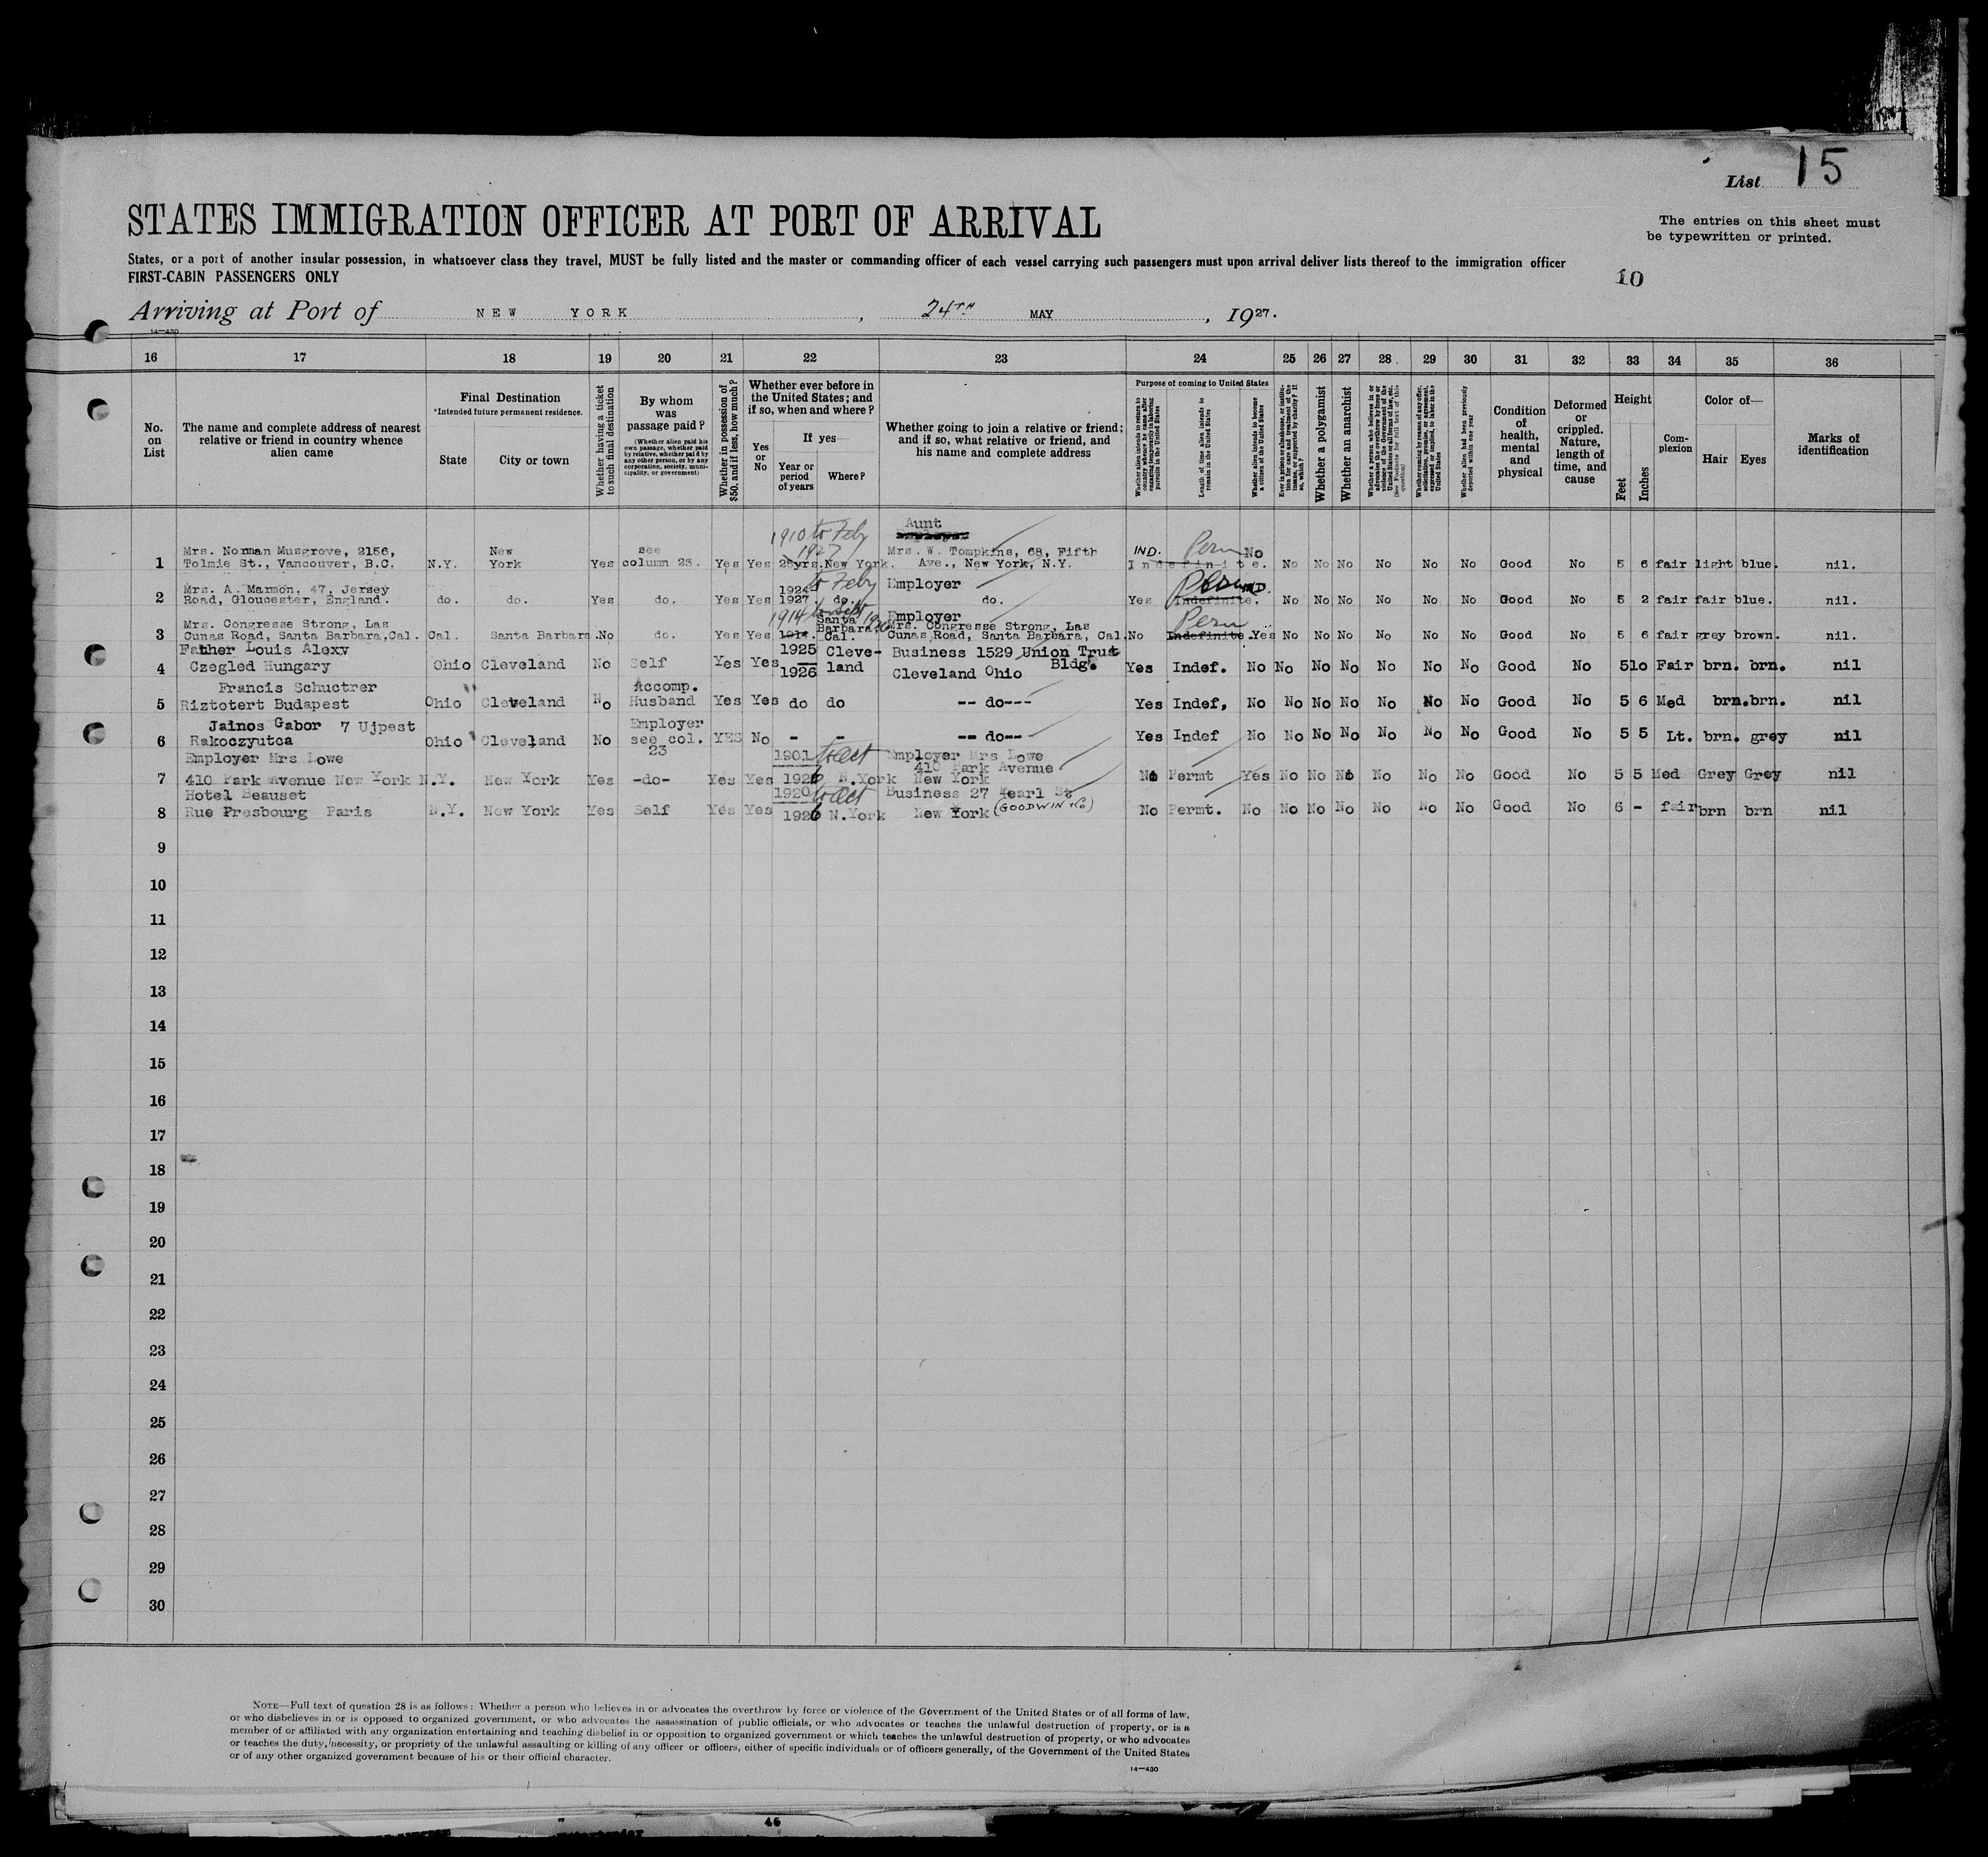 List 15
STATES IMMIGRATION OFFICER AT PORT OF ARRIVAL
The entries on this sheet must
be typewritten or printed.
States, or a port of another insular possession, in whatsoever class they travel, MUST be fully listed and the master or commanding officer of each vessel carrying such passengers must upon arrival deliver lists thereof to the immigration officer
FIRST-CABIN PASSENGERS ONLY
10
Arriving at Port of NEW YORK, 24TH MAY, 1927.
14—430
16 17 18 19 20 21 22 23 24 25 26 27 28 29 30 31 32 33 34 35 36
No. on List
The name and complete address of nearest relative or friend in country whence alien came
Final Destination
*Intended future permanent residence.
State
City or town
Whether having a ticket to such final destination
By whom was passage paid?
(Whether alien paid his own passage, whether paid by relative, whether paid by any other person, or by any corporation, society, municipality, or government)
Whether in possession of $50, and if less, how much?
Whether ever before in the United States; and if so, when and where?
Yes or No
If yes—
Year or period of years
Where?
Whether going to join a relative or friend; and if so, what relative or friend, and his name and complete address
Purpose of coming to United States
Whether alien intends to return to country whence he came after engaging temporarily in laboring pursuits in the United States
Length of time alien intends to remain in the United States
Whether alien intends to become a citizen of the United States
Ever in prison or almshouse, or institution for care and treatment of the insane, or supported by charity? If so, which?
Whether a polygamist
Whether an anarchist
Whether alien had been previously deported within one year
Condition of health, mental and physical
Deformed or crippled. Nature, length of time, and cause
Height
Feet
Inches
Complexion
Color of—
Hair
Eyes
Marks of identification
1910 to Feby Aunt
1927
1 Mrs. Norman Musgrove, 2156, New see Mrs. W. Tompkins, 68, Fifth IND. Perm No
Tolmie St., Vancouver, B.C. N.Y. York Yes column 23. Yes Yes 25yrs. New York. Ave., New York, N.Y. Indefinite. No No No No No No Good No 5 6 fair light blue. nil.
2 Mrs. A. Marmon, 47, Jersey 1924 to Feby Employer Perm
Road, Gloucester, England. do. do. Yes do. Yes Yes 1927. do. do. Yes Indefinite. No No No No No No Good No 5 2 fair fair blue. nil.
3 Mrs. Congresse Strong, Las 1914 to Sept Santa Barbara, Employer Mrs. Congresse Strong, Las Perm
Cunas Road, Santa Barbara, Cal. Cal. Santa Barbara. No do. Yes Yes 1914. Cal. Cunas Road, Santa Barbara, Cal. No Indefinite. Yes No No No No No No Good No 5 6 fair grey brown. nil.
4 Father Louis Alexy 1925 Cleve- Business 1529 Union Trust
Czegled Hungary Ohio Cleveland No Self Yes Yes 1926 land Cleveland Ohio Bldg. Yes Indef. No No No No No No No Good No 5 10 Fair brn. brn. nil
5 Francis Schuctrer Accomp.
Riztotert Budapest Ohio Cleveland No Husband Yes Yes do do -- do--- Yes Indef, No No No No No No No Good No 5 6 Med brn. brn. nil
6 Jainos Gabor 7 Ujpest Employer
Rakoczyutca Ohio Cleveland No see col. 23 YES No - - -- do-- Yes Indef No No No No No No No Good No 5 5 Lt. brn. grey nil
7 Employer Mrs Lowe 1901 to Oct Employer Mrs Lowe 410 Park Avenue
410 Park Avenue New York N.Y. New York Yes -do- Yes Yes 1926 N.York New York No Permt Yes No No No No No No Good No 5 5 Med Grey Grey nil
8 Hotel Beauset 1920 to Oct Business 27 Pearl St
Rue Presbourg Paris N.Y. New York Yes Self Yes Yes 1926 N.York New York (GOODWIN & Co) No Permt. No No No No No No No Good No 6 - fair brn brn nil
9
10
11
12
13
14
15
16
17
18
19
20
21
22
23
24
25
26
27
28
29
30
NOTE—Full text of question 28 is as follows: Whether a person who believes in or advocates the overthrow by force or violence of the Government of the United States or of all forms of law,
or who disbelieves in or is opposed to organized government, or who advocates the assassination of public officials, or who advocates or teaches the unlawful destruction of property, or is a
member of or affiliated with any organization entertaining and teaching disbelief in or opposition to organized government or which teaches the unlawful destruction of property, or who advocates
or teaches the duty, necessity, or propriety of the unlawful assaulting or killing of any officer or officers, either of specific individuals or of officers generally, of the Government of the United States
or of any other organized government because of his or their official character.
14—430
46